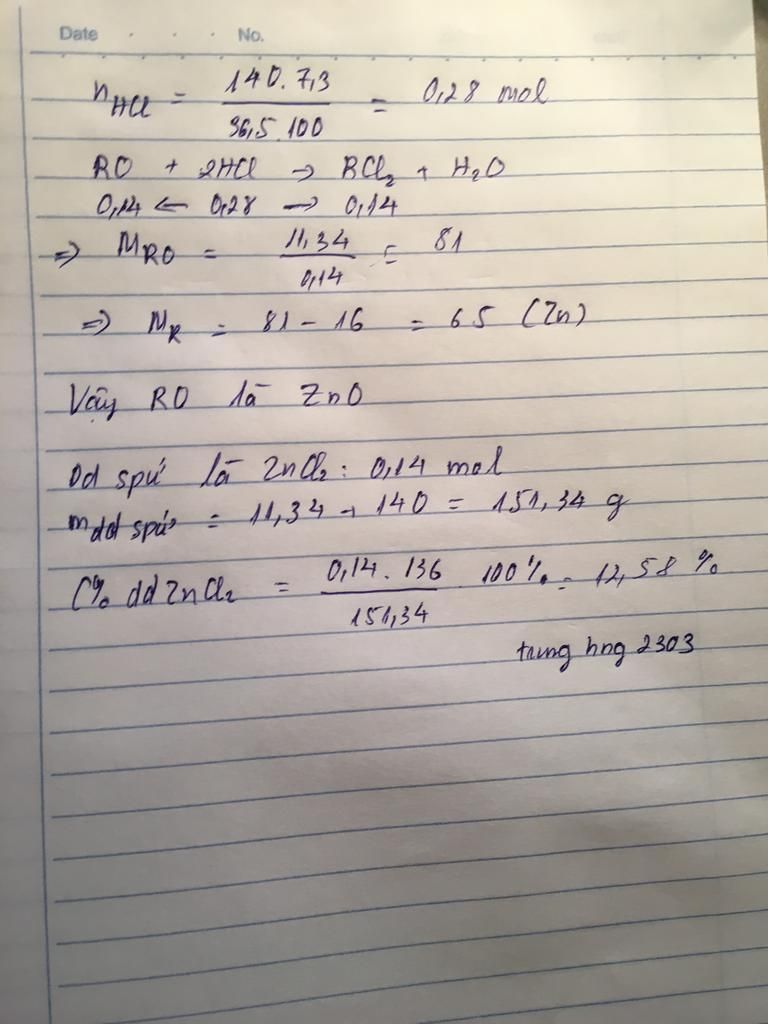 Date . . . No.
n HCl = 140.7,3 / 36,5.100 = 0,28 mol
RO + 2HCl → RCl₂ + H₂O
0,14 ← 0,28 → 0,14
⇒ M RO = 11,34 / 0,14 = 81
⇒ M R = 81 - 16 = 65 (Zn)
Vậy RO là ZnO
Dd spứ là ZnCl₂: 0,14 mol
m dd spứ = 11,34 + 140 = 151,34 g
C% dd ZnCl₂ = 0,14.136 / 151,34 100% = 12,58 %
trung hng 2303